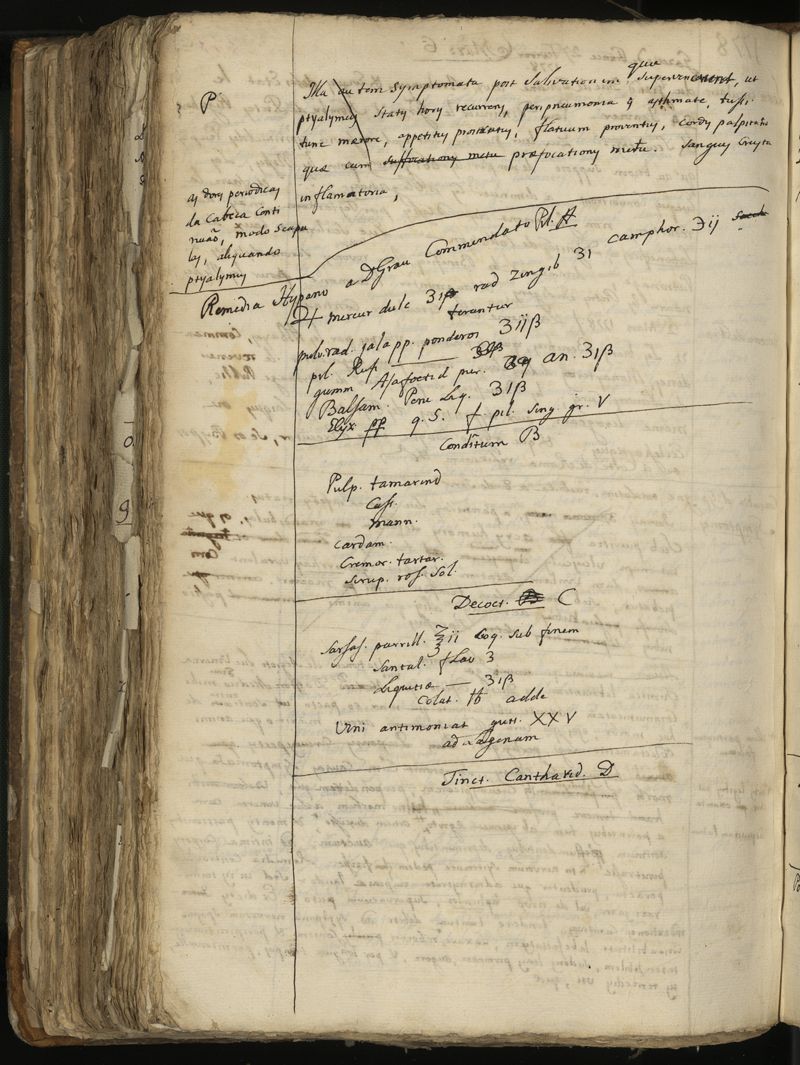 P
que
Illa autem symptomata post salivationem supervenerent, ut
ptyalymus statis horis recurrens, peripneumonia q asthmate, tussi.
tunc mærore, appetitus prostratus, flatuum proventus, cordis palpitatio
quæ cum suffocationis metu præfocationis metu. sanguis crusta
inflamatoria,
as dores periodicas
da Cabeca Conti
nuaõ, modo Scapu
las, aliquando
ptyalymus
Remedia Hispano a DGrau Commendato Pil. A
mercur dulc ʒiß rad zingib ʒi camphor. ℈ij
terantur
pulv. rad. jalapp. ponderos ʒijß
pil. Ruf.
gumm Asafoetid pur. an. ʒiß
Balsam. Peru Liq. ʒiß
Elix pp q. S. f pil. sing. gr. V
Conditum B
Pulp. tamarind
Cass.
Mann.
Cardam.
Cremor. tartar.
sirup. ros. Sol.
Decoct. C
Sarsaparrill. ℥ii coq. sub finem
Santal. flav ʒ
Liquiriæ — ʒiß
Colat. ℔ adde
Vini antimoniat gutt. XXV
ad lagenam
Tinct. Cantharid. D